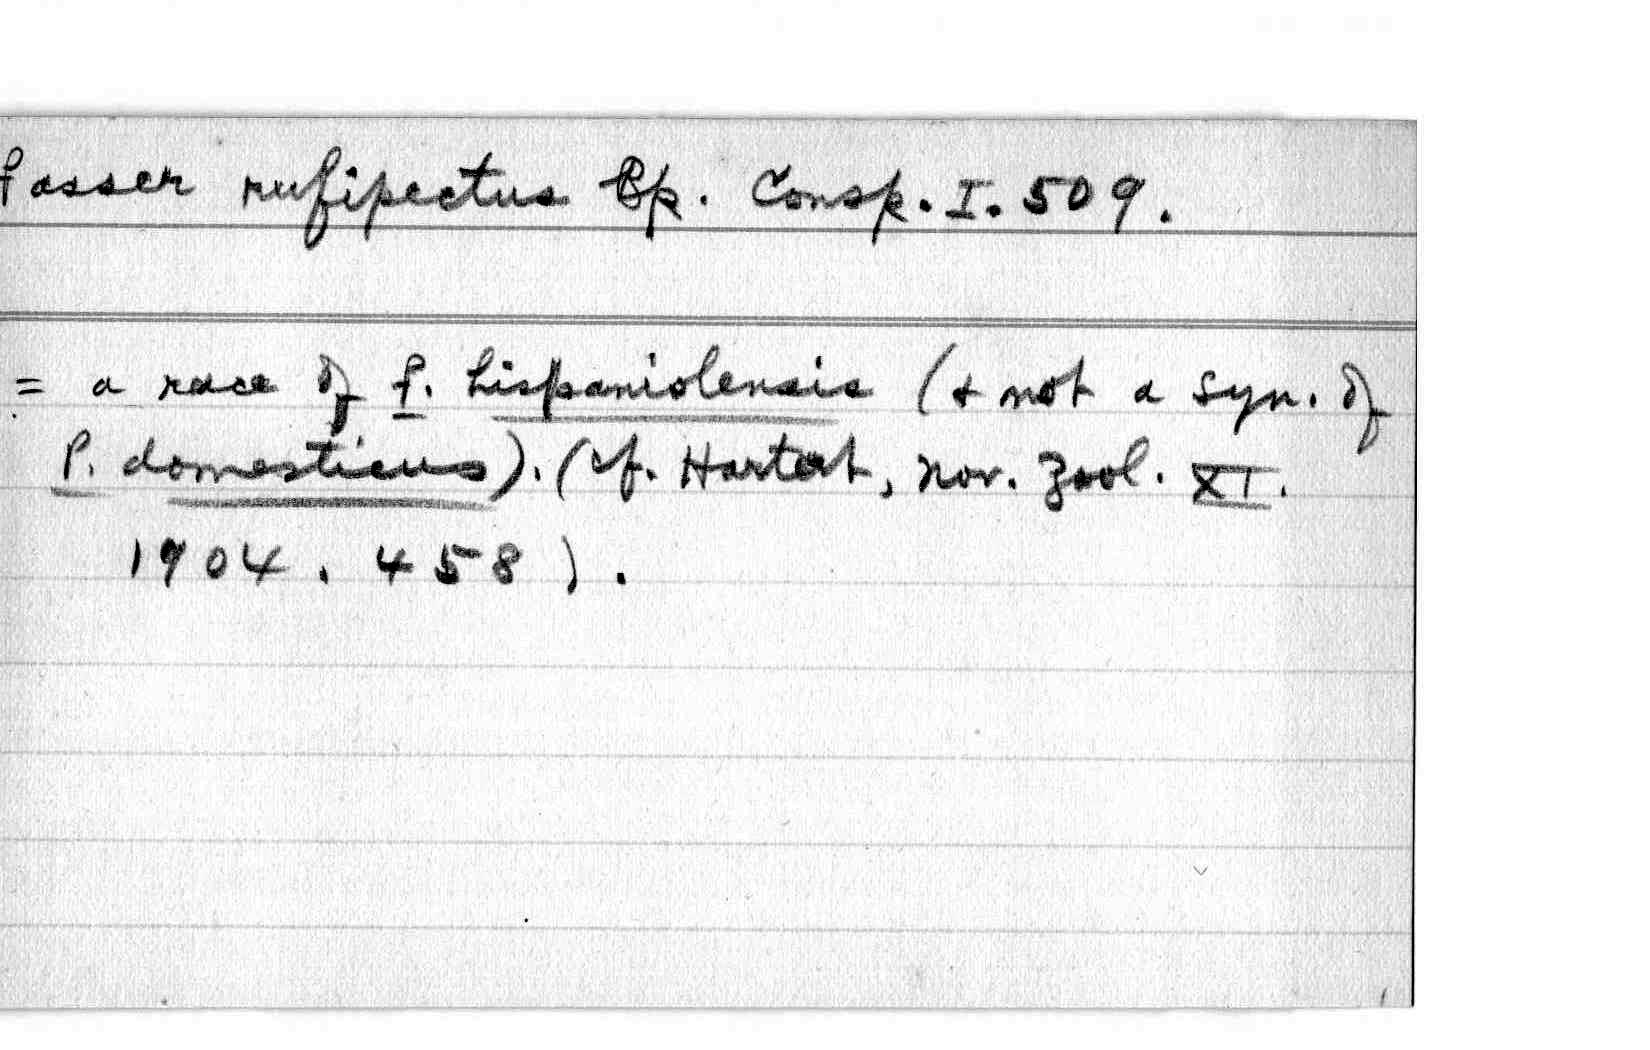 Passer rufipectus Bp. Consp. I. 509.
= a race of P. hispaniolensis (& not a syn. of
P. domesticus). (cf. Hartert, Nov. Zool. XI.
1904. 458).